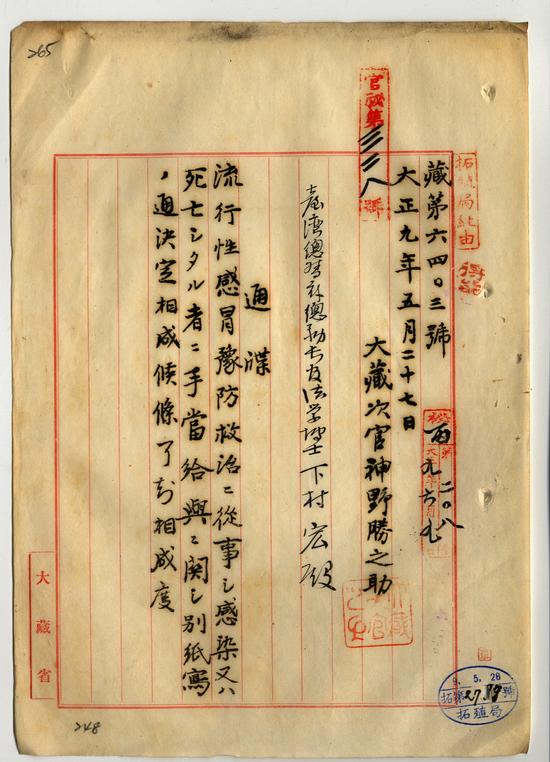 265
官祕第三三八號
拓殖局經由
藏第六四〇三號
大正九年五月二十七日
大藏次官神野勝之助
臺灣總督府總務長官法学博士下村宏殿
通牒
流行性感冒豫防救治ニ從事シ感染又ハ
死亡シタル者ニ手當給與ニ関シ別紙寫
ノ通決定相成候條了知相成度
大藏省
9.5.28
拓第2789號
拓殖局
248